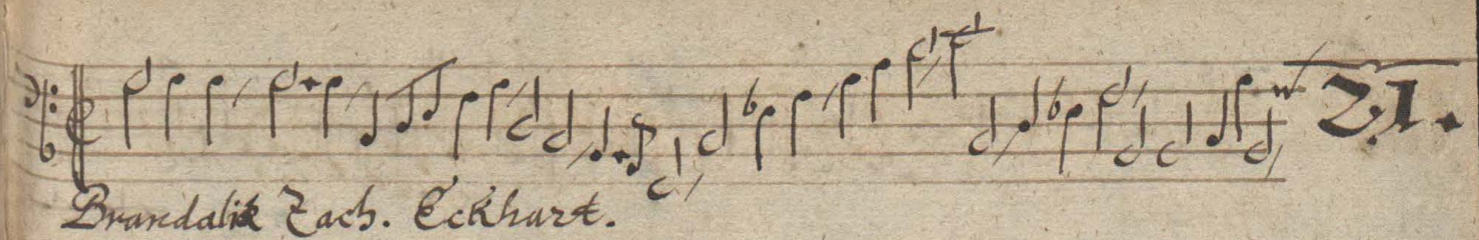 21.
Brandalik Zach. Eckhart.